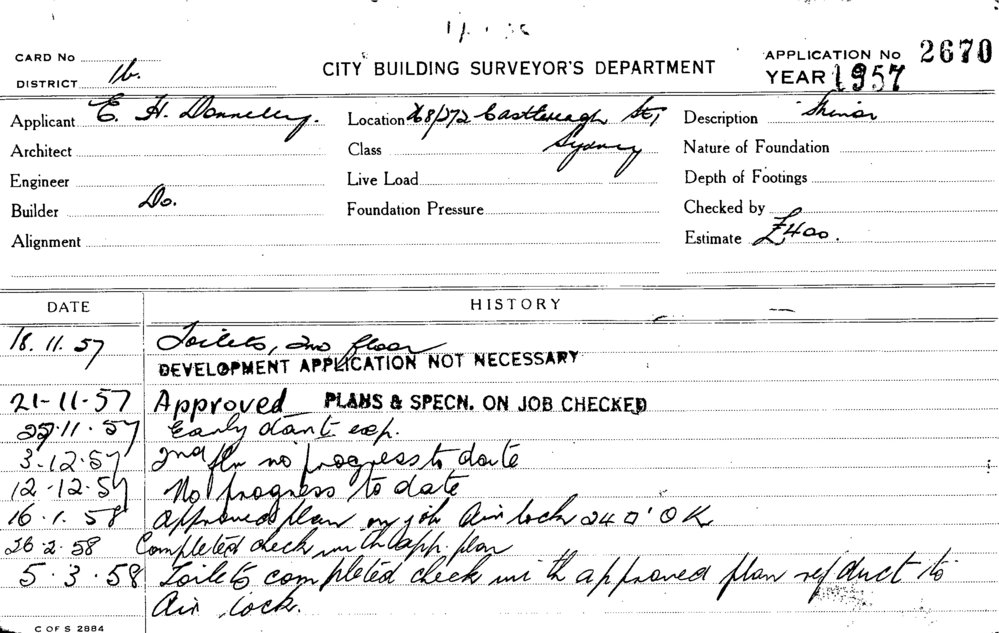 CARD No
DISTRICT 16.
CITY BUILDING SURVEYOR'S DEPARTMENT
APPLICATION No 2670
YEAR 1957
Applicant E. H. Donnelly. Location 268/272 Castlereagh St, Description Minor
Architect Class Sydney Nature of Foundation
Engineer Live Load Depth of Footings
Builder Do. Foundation Pressure Checked by
Alignment Estimate £400.
DATE HISTORY
18.11.57 Toilets, 2nd floor
DEVELOPMENT APPLICATION NOT NECESSARY
21-11-57 Approved PLANS & SPECN. ON JOB CHECKED
11.57 Early
3.12.57 2nd flr no progress to date
12-12.57 No progress to date
16.1.58 Approved plan on job Air lock 24 □' OK
26.2.58 Completed check with app. plan
5.3.58 Toilets completed check with approved plan ref duct to
Air lock.
C OF S 2884